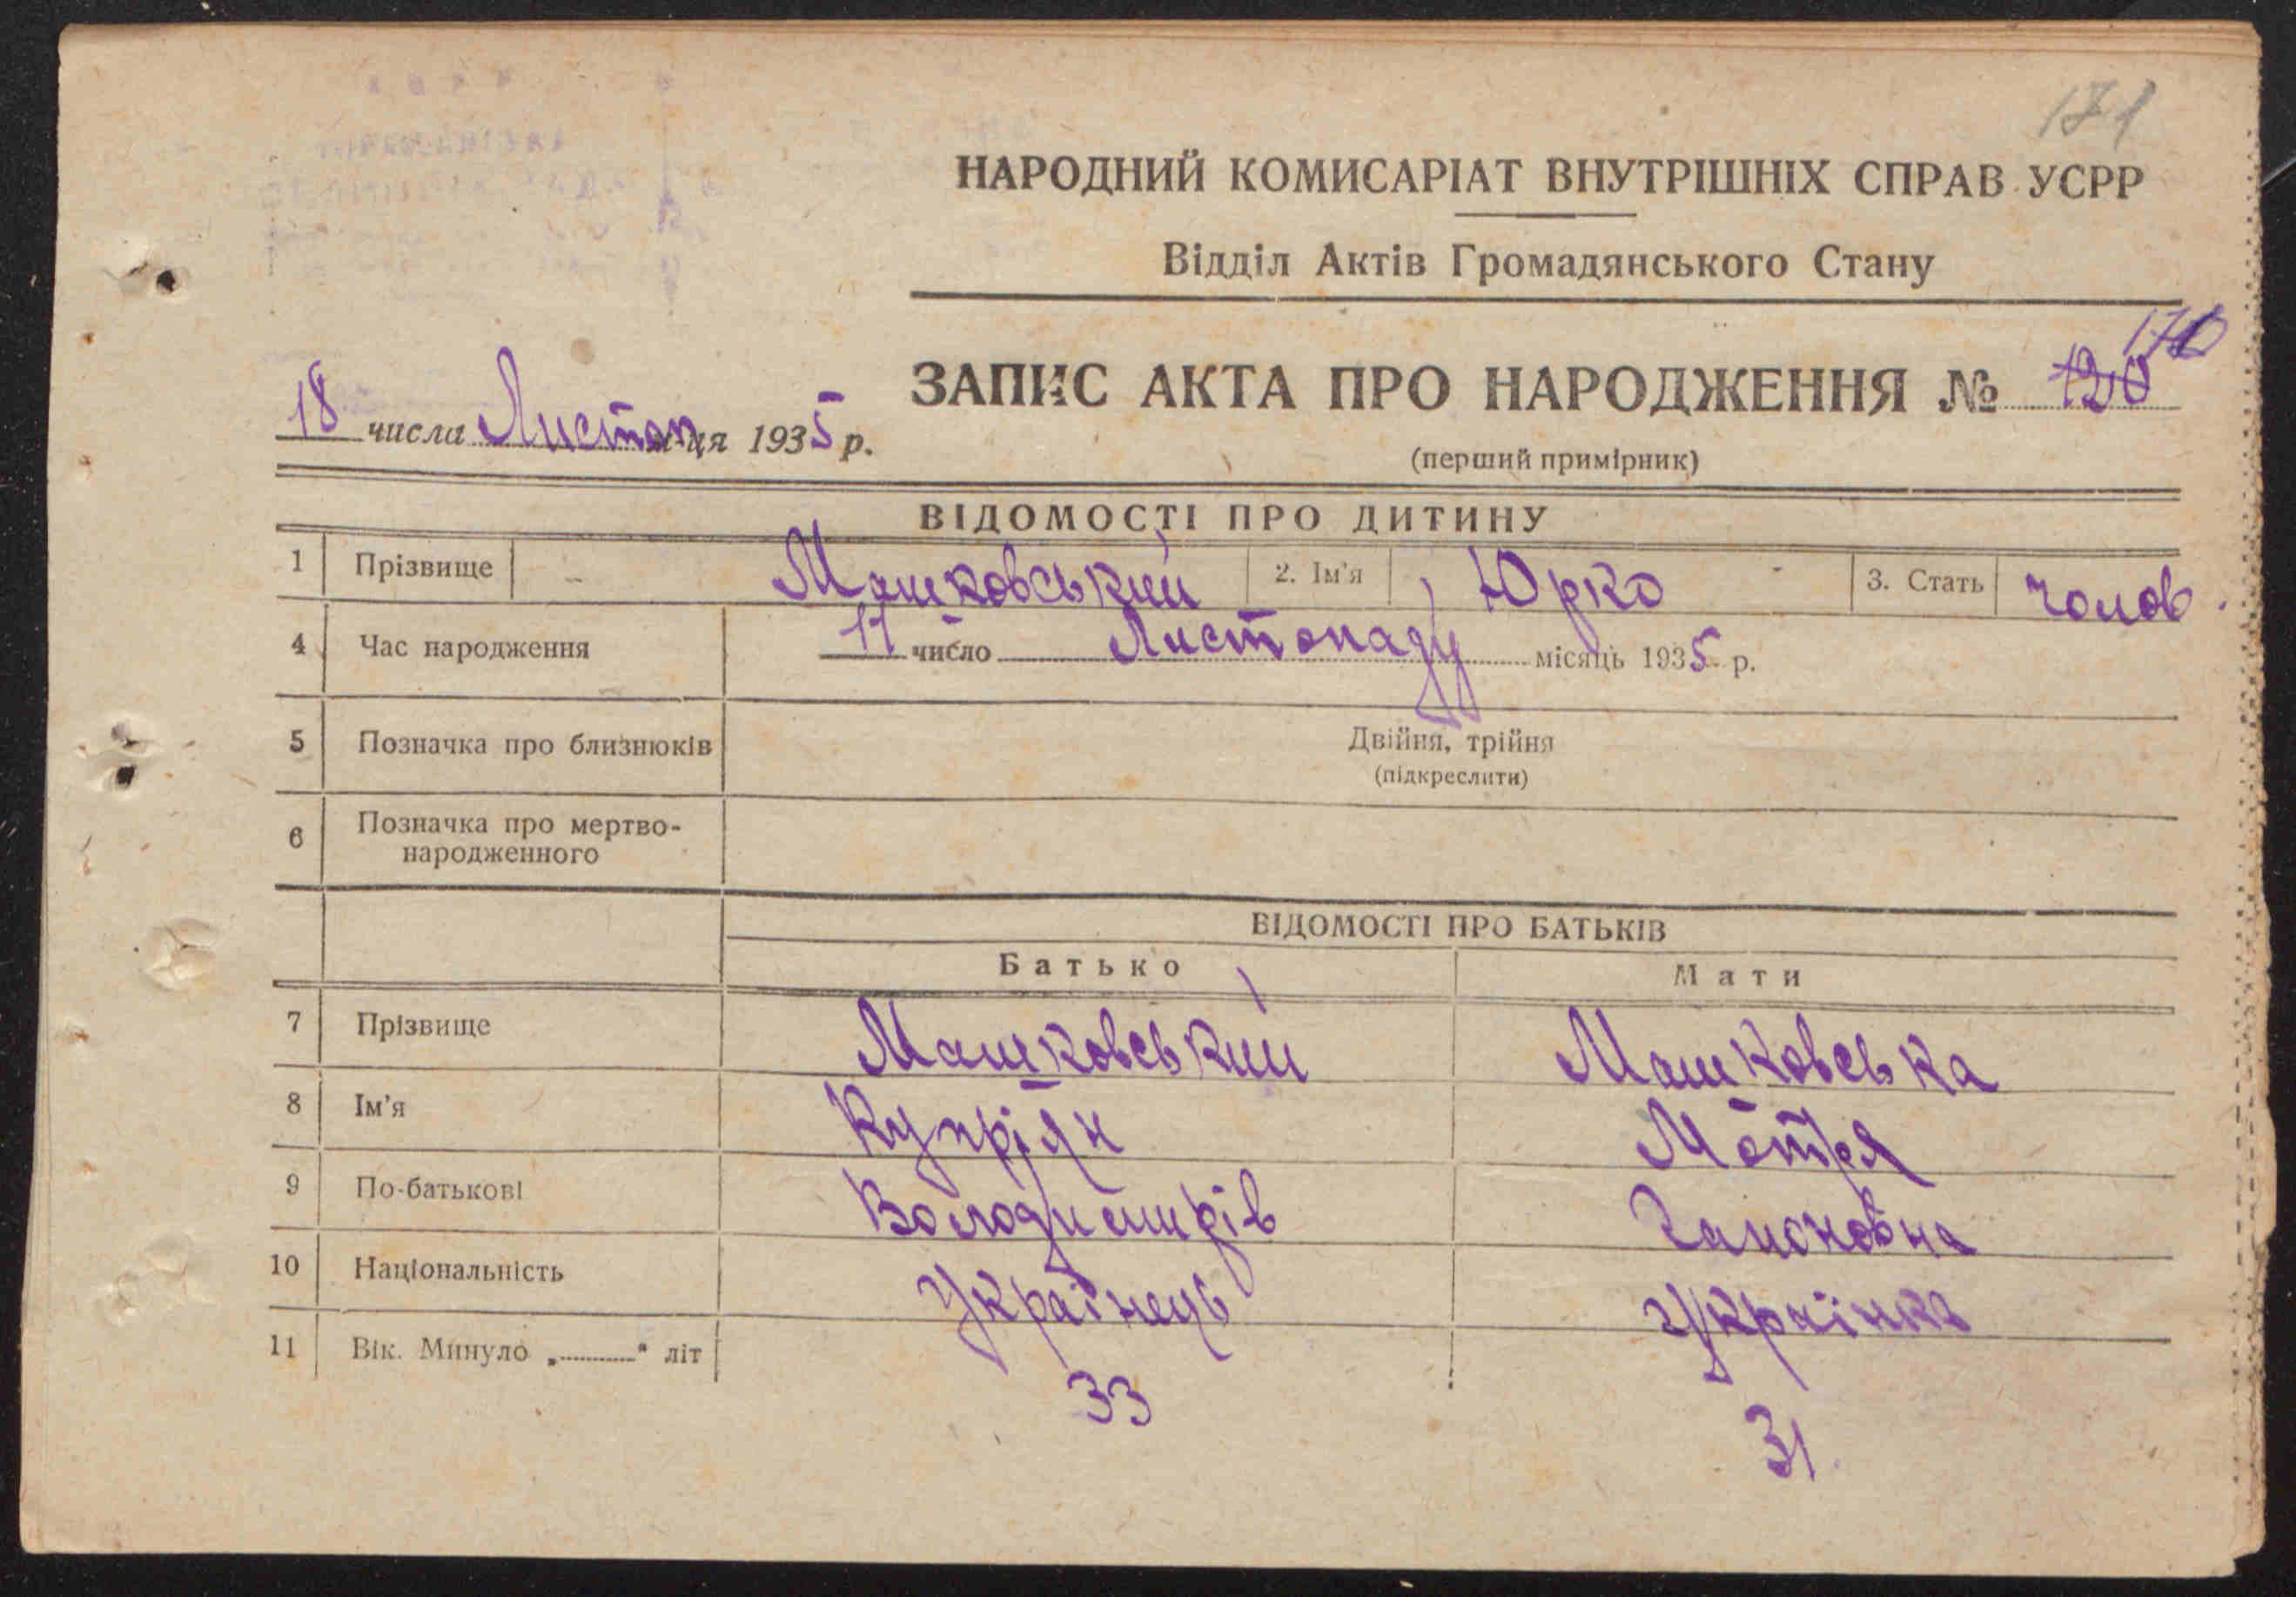 171
НАРОДНИЙ КОМИСАРІАТ ВНУТРІШНІХ СПРАВ УСРР
Відділ Актів Громадянського Стану
170
ЗАПИС АКТА ПРО НАРОДЖЕННЯ № 120
18 числа Листоп м-ця 1935 р.
(перший примірник)
ВІДОМОСТІ ПРО ДИТИНУ
1 Прізвище Машковський 2. Ім'я Юрко 3. Стать чолов.
4 Час народження 11 число Листопаду місяць 1935 р.
5 Позначка про близнюків Двійня, трійня
(підкреслити)
6 Позначка про мертво-
народженного
ВІДОМОСТІ ПРО БАТЬКІВ
Батько Мати
7 Прізвище Машковський Машковська
8 Ім'я Купріян Мотря
9 По-батькові Володимирів
10 Національність Українець Українка
11 Вік. Минуло „ “ літ
33
31